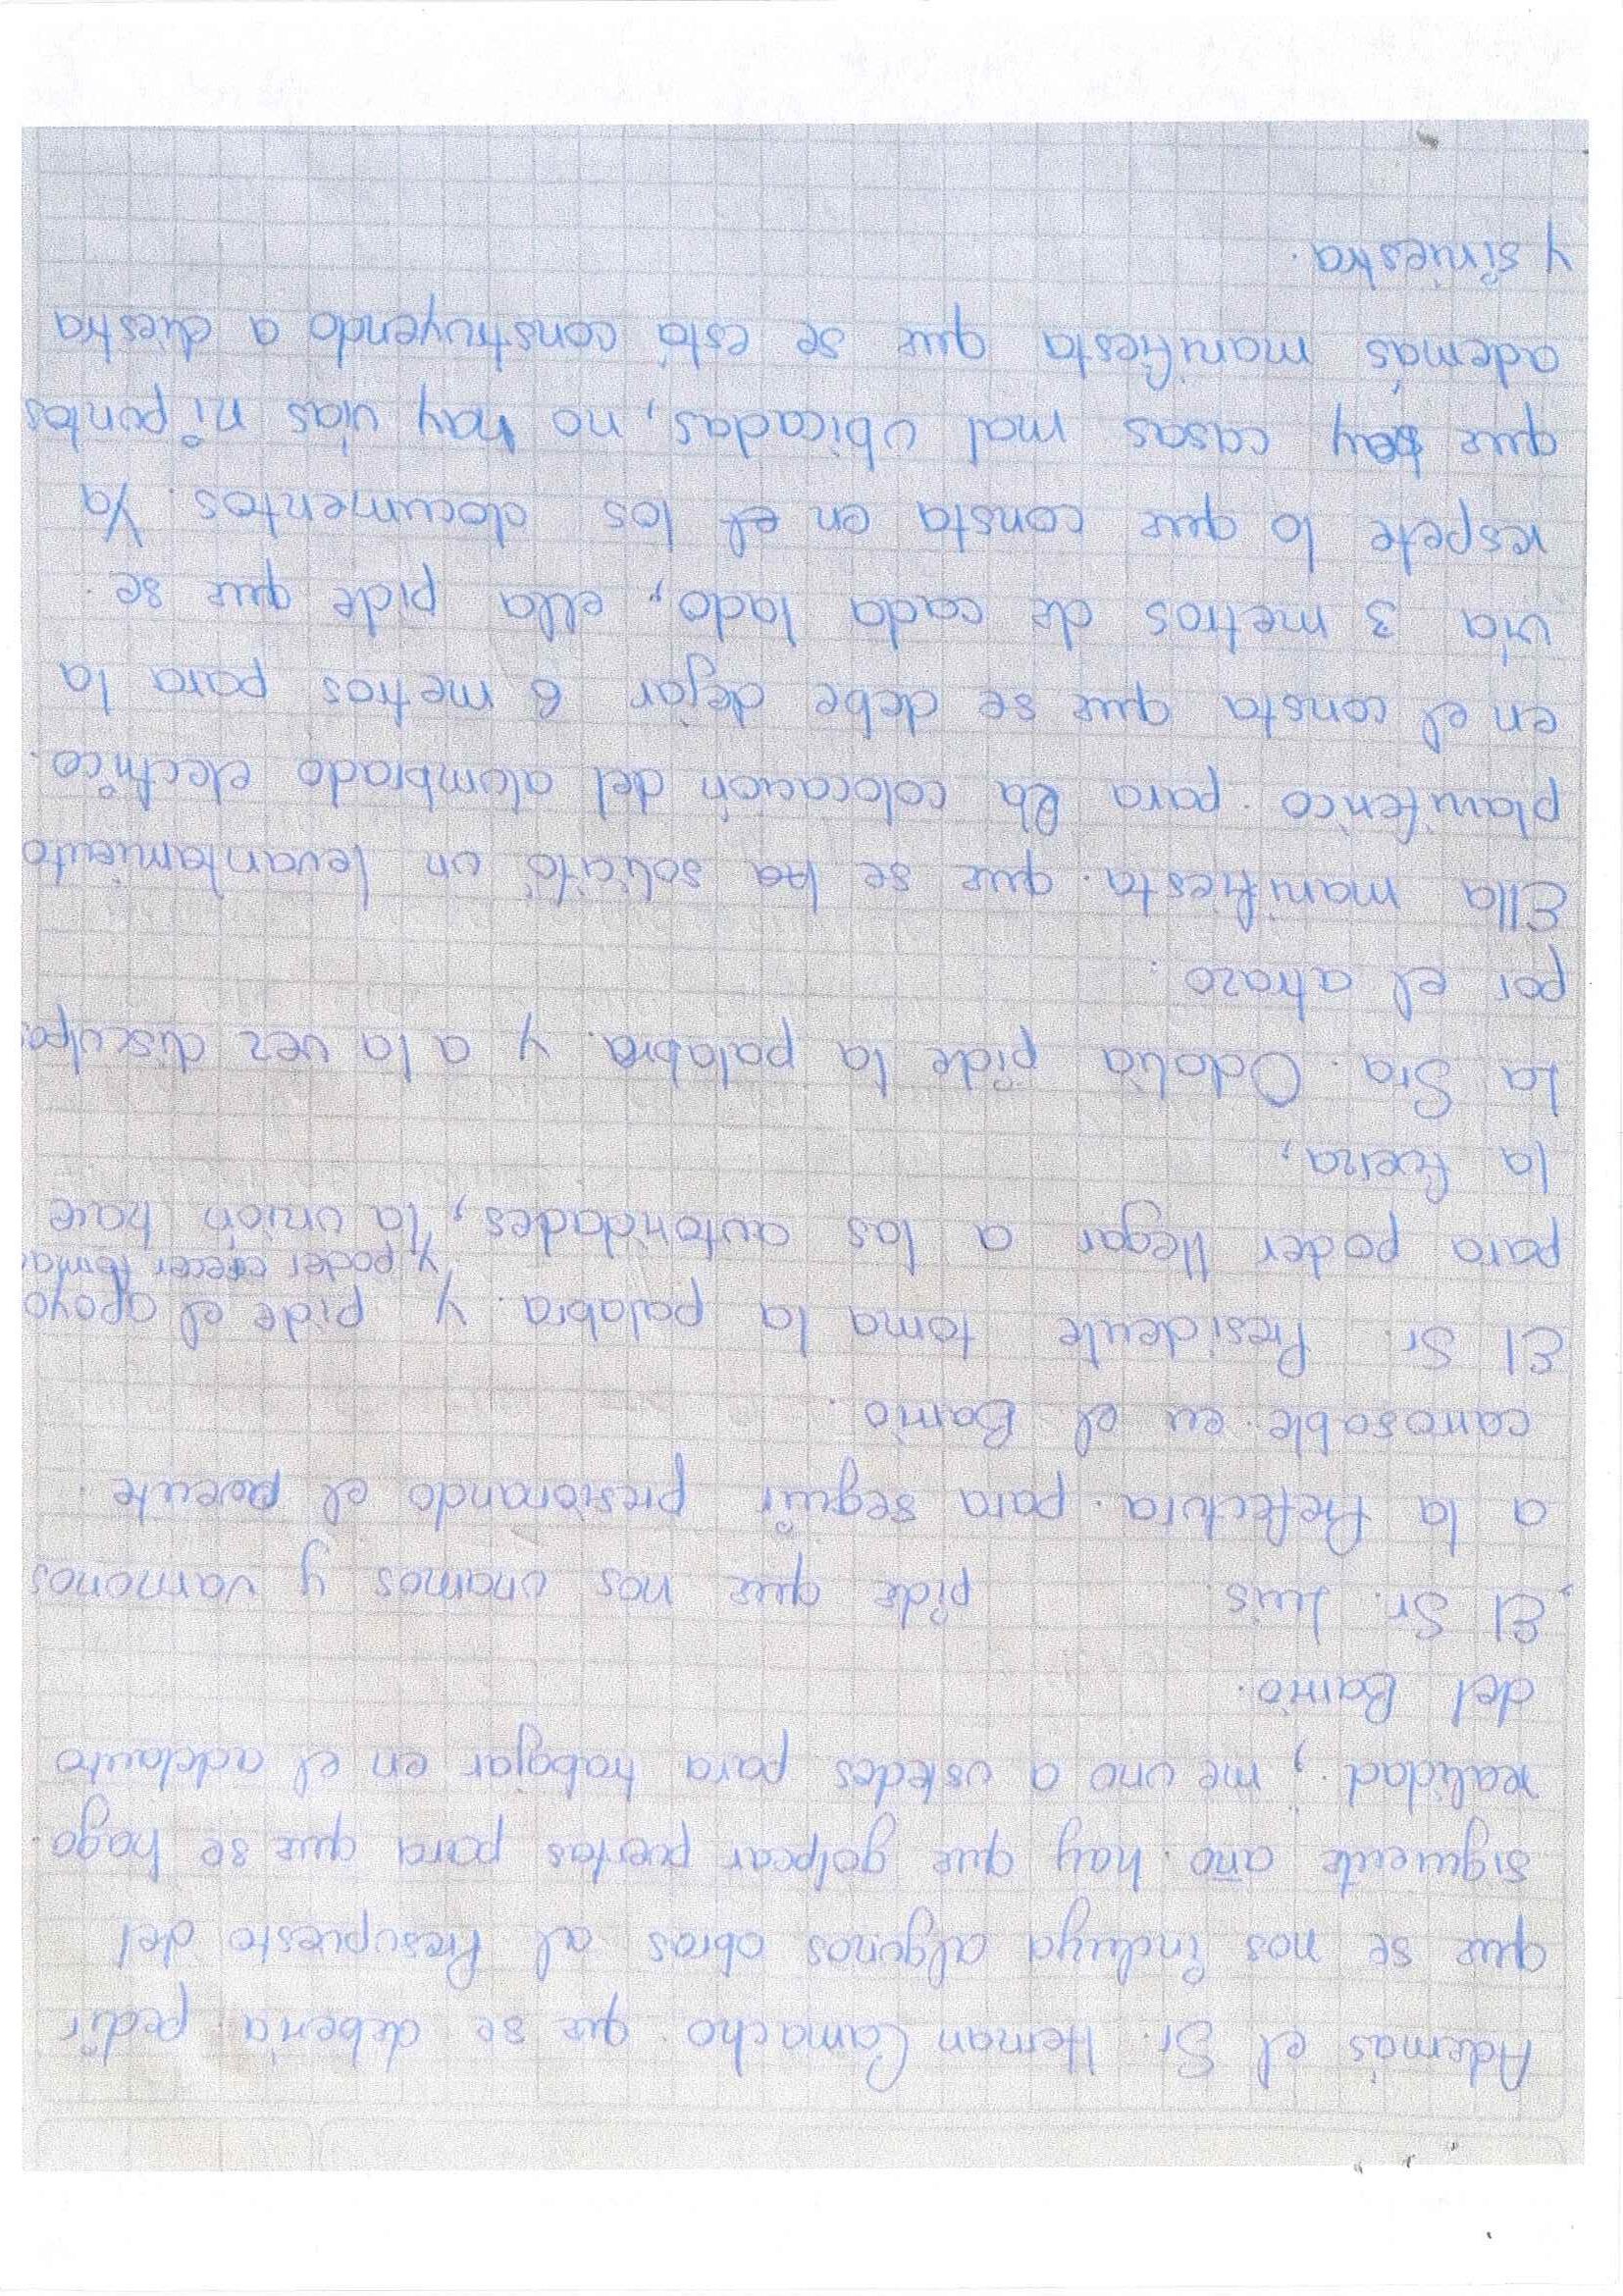 Además el Sr. Hernan Camacho que se debería pedir
que se nos incluya algunos obras al Presupuesto del
siguiente año hay que golpear puertas para que se haga
realidad, me uno a ustedes para trabajar en el adelanto
del Barrio.
El Sr. Luis pide que nos unamos y vamonos
a la Prefectura para seguir presionando el puente
carrosable en el Barrio.
El Sr. Presidente toma la palabra y pide el apoyo
y poder crecer
para poder llegar a las autoridades, la unión hace
la fuerza,
La Sra. Odalia pide la palabra y a la vez disculpa
por el atrazo.
Ella manifiesta que se ha solicitó un levantamiento
planiferico para la colocación del alombrado electrico.
en el consta que se debe dejar 6 metros para la
vía 3 metros de cada lado, ella pide que se
respete lo que consta en el los documentos. Ya
que hay casas mal ubicadas, no hay vías ni puntos
además manifiesta que se está construyendo a diestra
y siniestra.